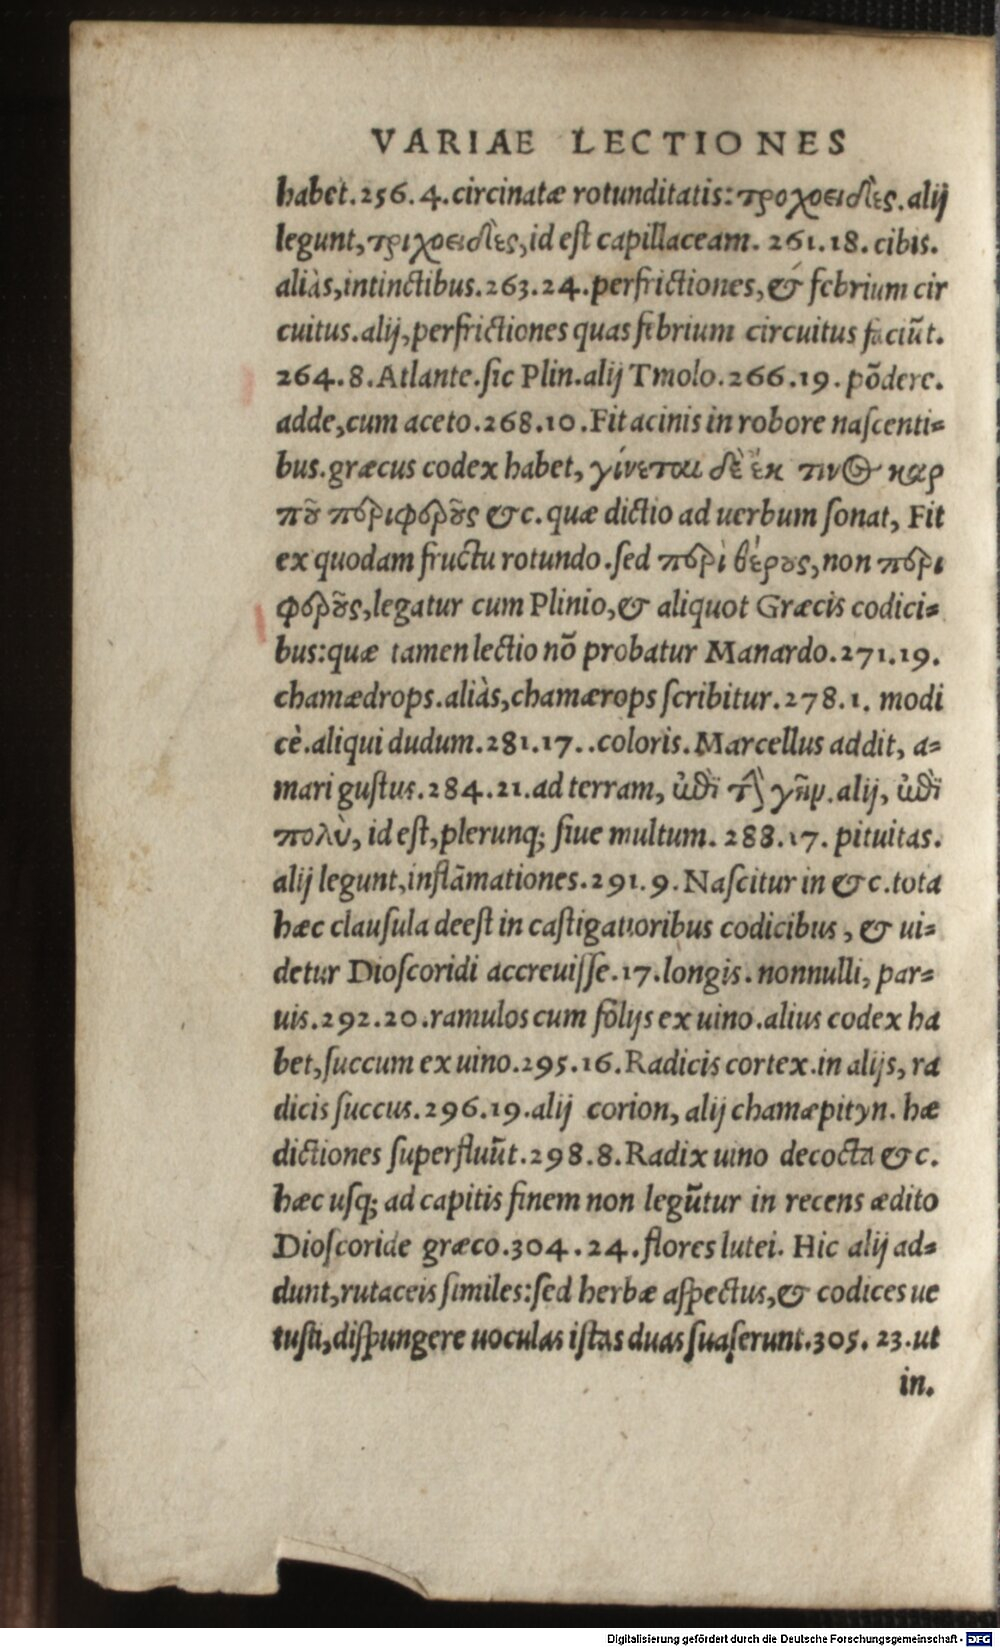 VARIAE LECTIONES
habet.256.4.circinatæ rotunditatis:τροχοειδὲς.alij
legunt,τριχοειδὲς,id eſt capillaceam. 261.18.cibis.
aliàs,intinctibus.263.24.perfrictiones,& febrium cir
cuitus.alij,perfrictiones quas febrium circuitus faciūt.
264.8.Atlante.ſic Plin.alij Tmolo.266.19.põdere.
adde,cum aceto.268.10.Fit acinis in robore naſcenti=
bus.græcus codex habet, γίνεται δὲ ἐκ τινος καρ
ποῦ περιφεροῦς &c.quæ dictio ad uerbum ſonat, Fit
ex quodam fructu rotundo.ſed περὶ θέρους,non περι
φεροῦς,legatur cum Plinio,& aliquot Græcis codici=
bus:quæ tamen lectio nõ probatur Manardo.271.19.
chamædrops.aliàs,chamærops ſcribitur.278.1. modi
cè.aliqui dudum.281.17..coloris.Marcellus addit, a=
mari guſtus.284.21.ad terram, ἐπὶ τὴν γῆν.alij, ἐπὶ
πολὺ, id eſt,plerunq; ſiue multum. 288.17. pituitas.
alij legunt,inflãmationes.291.9.Naſcitur in &c.tota
hæc clauſula deeſt in caſtigatioribus codicibus, & ui=
detur Dioſcoridi accreuiſſe.17.longis.nonnulli, par=
uis.292.20.ramulos cum folijs ex uino.alius codex ha
bet,ſuccum ex uino.295.16.Radicis cortex.in alijs, ra
dicis ſuccus.296.19.alij corion, alij chamæpityn. hæ
dictiones ſuperfluūt.298.8.Radix uino decocta &c.
hæc uſq; ad capitis finem non legūtur in recens ædito
Dioſcoride græco.304.24.flores lutei. Hic alij ad=
dunt,rutaceis ſimiles:ſed herbæ aſpectus,& codices ue
tuſti,diſpungere uoculas iſtas duas ſuaſerunt.305. 23.ut
in.
Digitalisierung gefördert durch die Deutsche Forschungsgemeinschaft - DFG